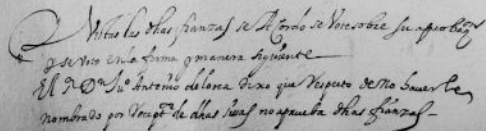 Vistas las dhas fianzas se Acordó se Vote sobre su aprobaⁿ
y se voto en la forma y manera siguiente
El sʳ Dⁿ Juº Antonio de Dixo que Respecto de no haverle
nombrado por de dhas no aprueba dhas fianzas